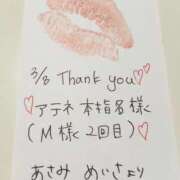 3/8 Thank you♡
♡アテネ 本指名様
(M様2回目)♡
あさみ めいさより